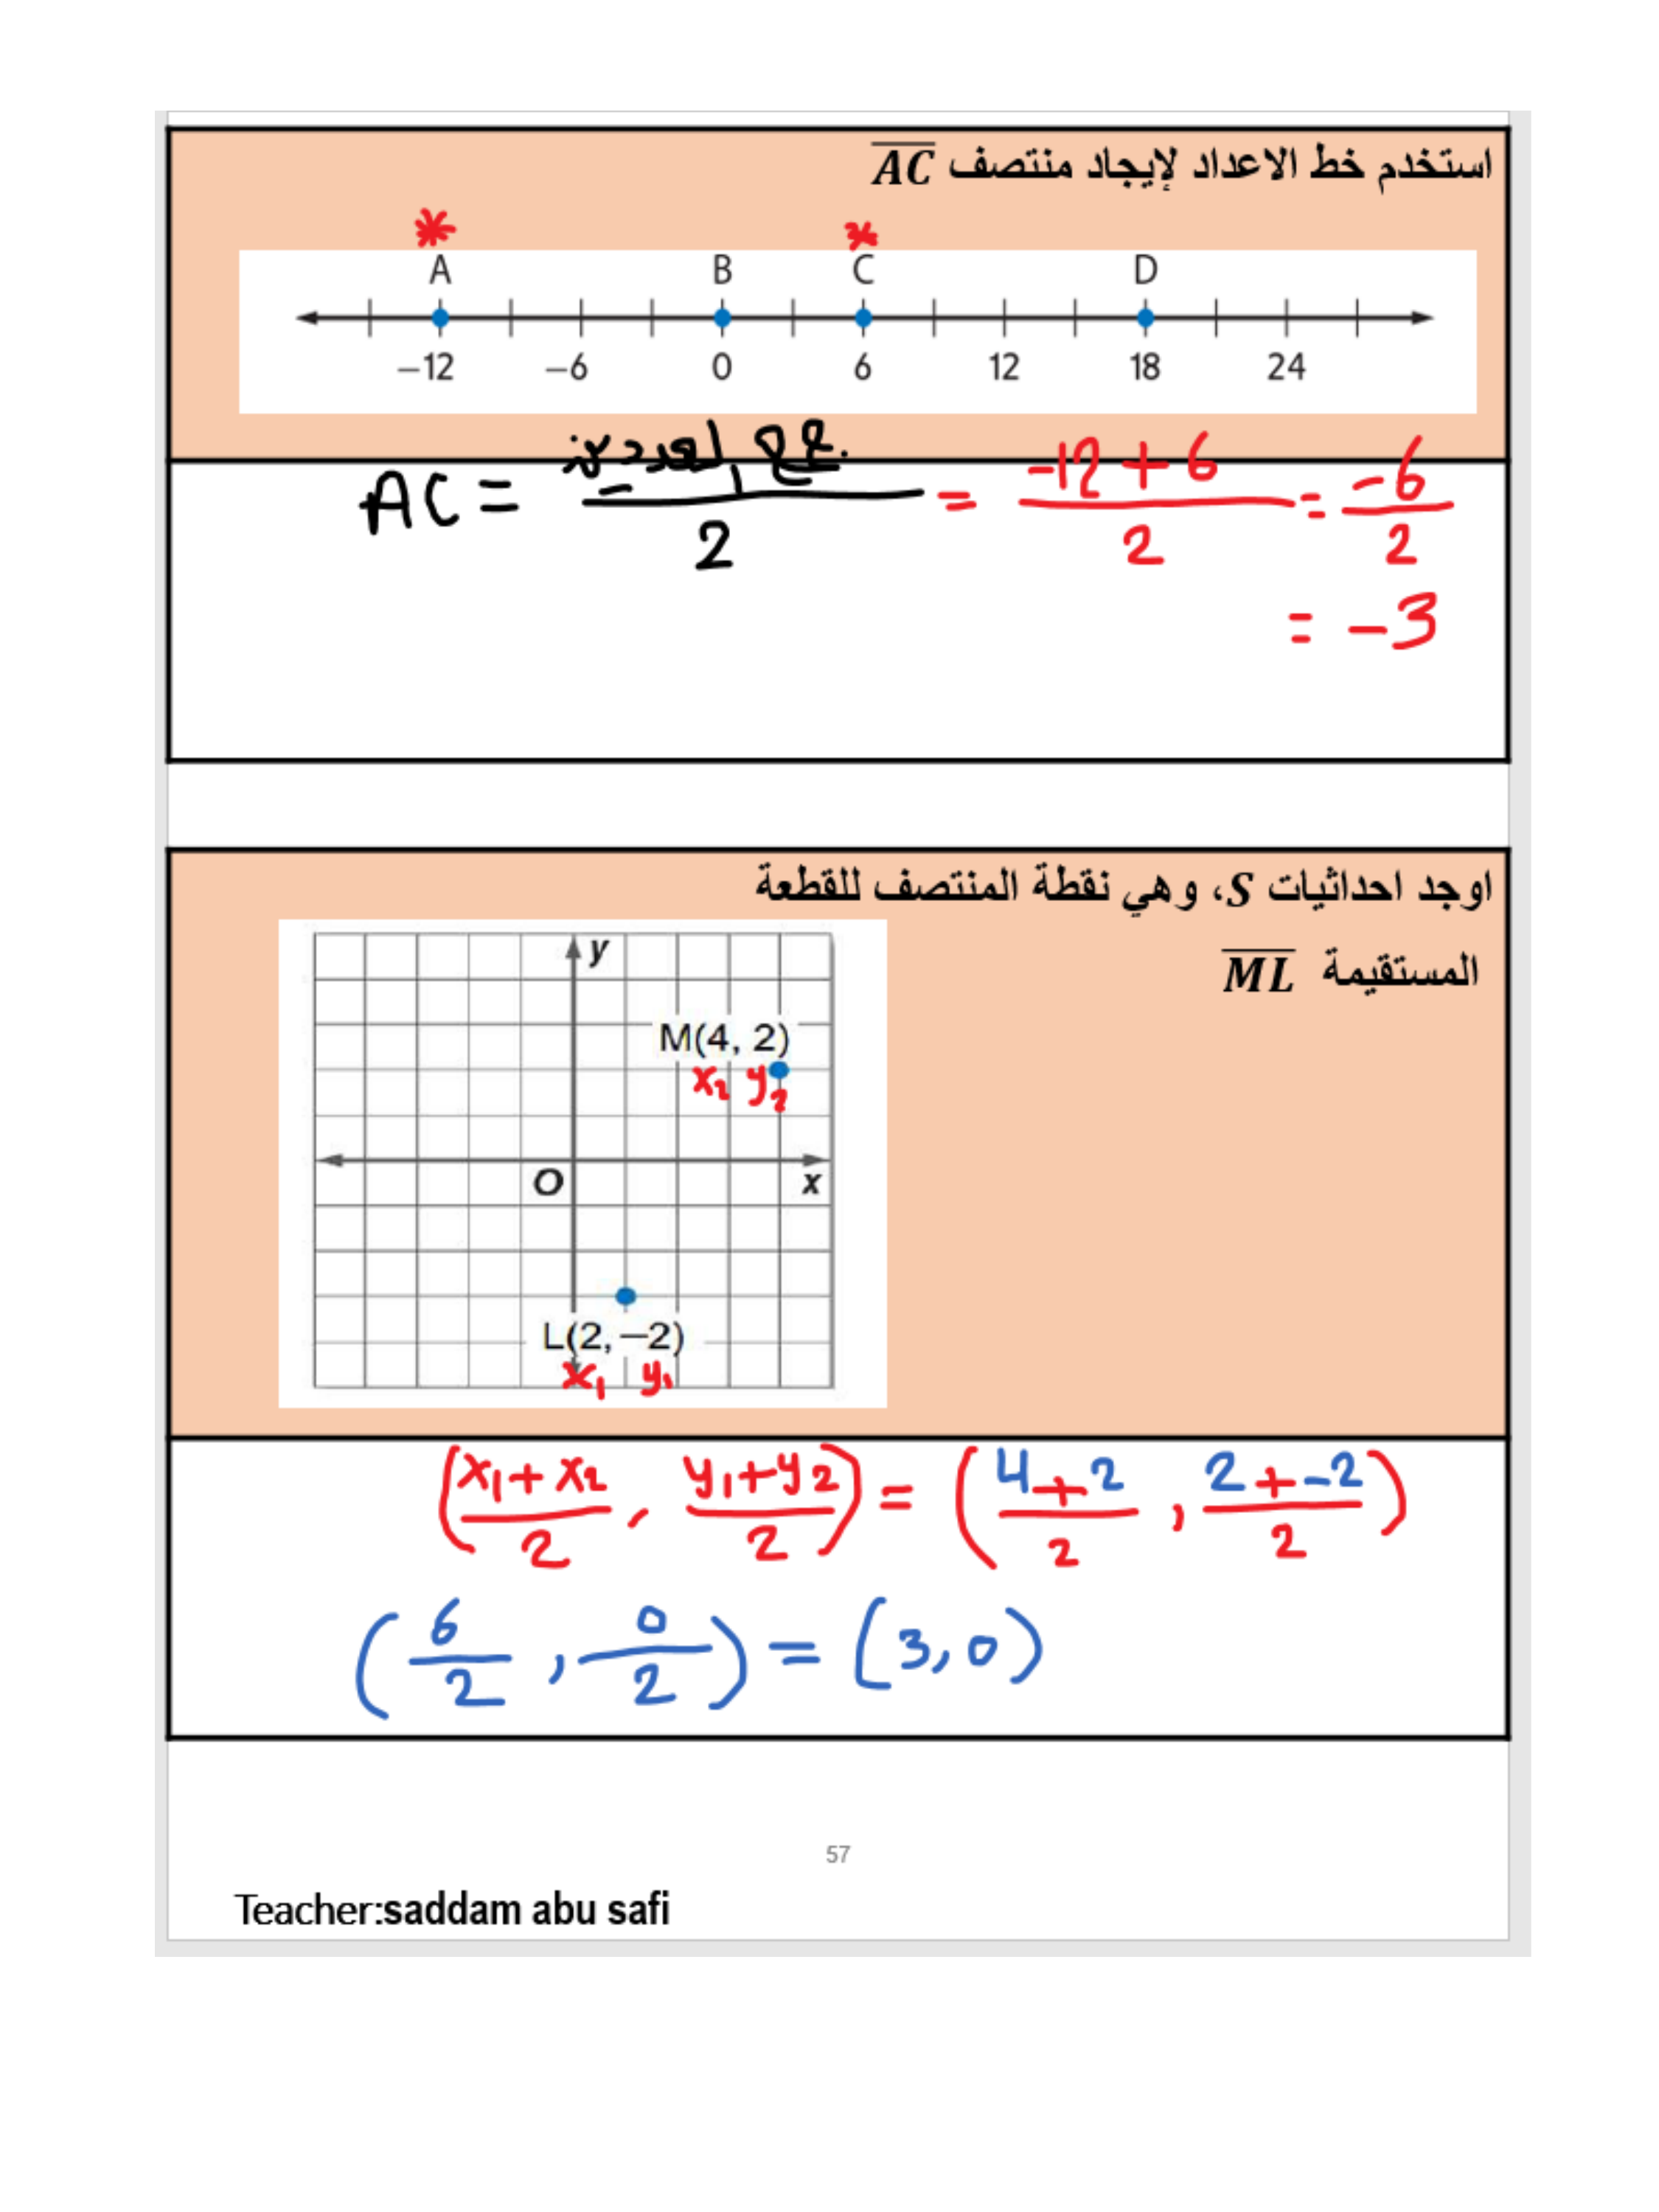 استخدم خط الاعداد لإيجاد منتصف AC
A B C D
−12 −6 0 6 12 18 24
AC = 2 = -12 + 6 / 2 = -6 / 2
= -3
اوجد احداثيات S، وهي نقطة المنتصف للقطعة
المستقيمة ML
y
M(4, 2)
x2 y2
O x
L(2, −2)
x1 y1
(x1 + x2 / 2 , y1 + y2 / 2) = (4 + 2 / 2 , 2 + -2 / 2)
(6 / 2 , 0 / 2) = (3, 0)
57
Teacher:saddam abu safi